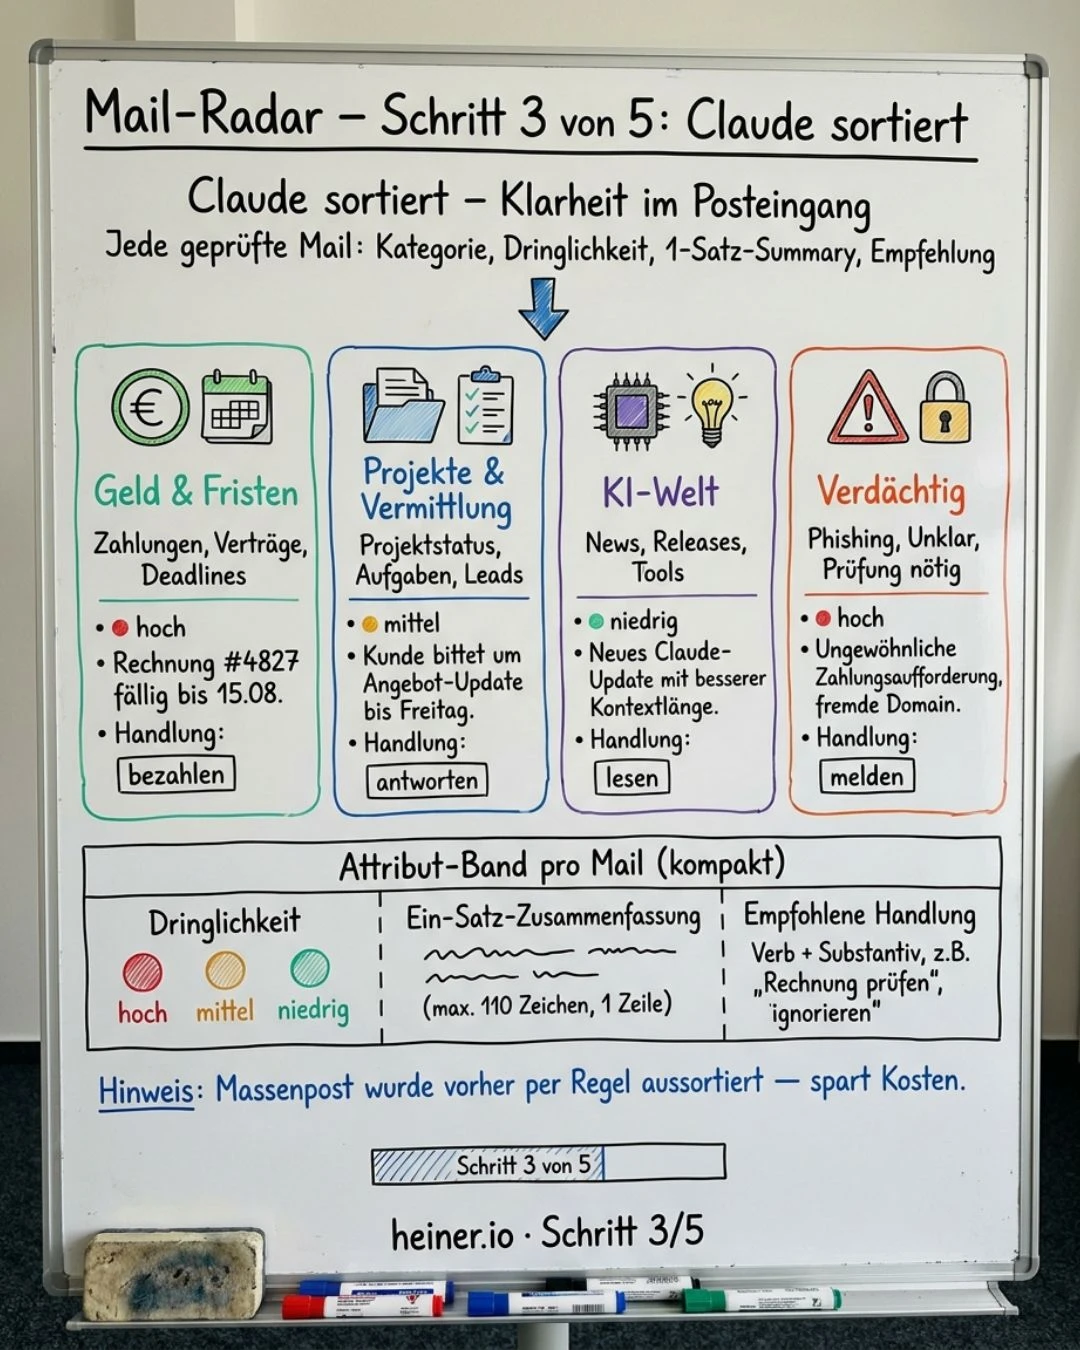 Mail-Radar – Schritt 3 von 5: Claude sortiert
Claude sortiert – Klarheit im Posteingang
Jede geprüfte Mail: Kategorie, Dringlichkeit, 1-Satz-Summary, Empfehlung
Geld & Fristen
Zahlungen, Verträge,
Deadlines
• hoch
• Rechnung #4827
fällig bis 15.08.
• Handlung:
bezahlen
Projekte &
Vermittlung
Projektstatus,
Aufgaben, Leads
• mittel
• Kunde bittet um
Angebot-Update
bis Freitag.
• Handlung:
antworten
KI-Welt
News, Releases,
Tools
• niedrig
• Neues Claude-
Update mit besserer
Kontextlänge.
• Handlung:
lesen
Verdächtig
Phishing, Unklar,
Prüfung nötig
• hoch
• Ungewöhnliche
Zahlungsaufforderung,
fremde Domain.
• Handlung:
melden
Attribut-Band pro Mail (kompakt)
Dringlichkeit
hoch
mittel
niedrig
Ein-Satz-Zusammenfassung
(max. 110 Zeichen, 1 Zeile)
Empfohlene Handlung
Verb + Substantiv, z.B.
„Rechnung prüfen“,
"ignorieren"
Hinweis: Massenpost wurde vorher per Regel aussortiert — spart Kosten.
Schritt 3 von 5
heiner.io · Schritt 3/5